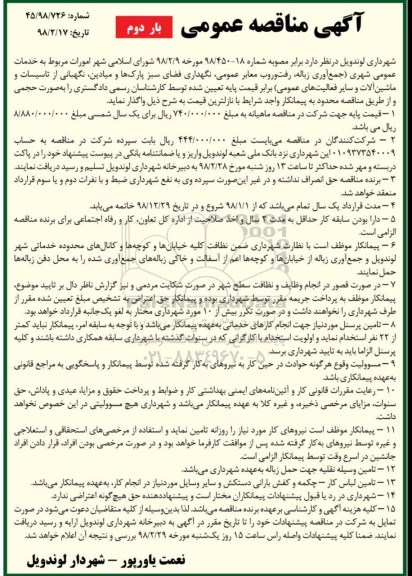 آگهی مناقصه عمومی
بار دوم
شماره: ۴۵/۹۸/۷۲۶
تاریخ: ۹۸/۲/۱۷
شهرداری لوندویل درنظر دارد برابر مصوبه شماره ۱۸-۹۸/۴۵۰ مورخه ۹۸/۲/۹ شورای اسلامی شهر امورات مربوط به خدمات
عمومی شهری (جمع‌آوری زباله، رفت‌وروب معابر عمومی، نگهداری فضای سبز پارک‌ها و میادین، نگهبانی از تاسیسات و
ماشین‌آلات و سایر فعالیت‌های عمومی) برابر قیمت پایه تعیین شده توسط کارشناسان رسمی دادگستری را به‌صورت حجمی
و از طریق مناقصه محدود به پیمانکار واجد شرایط با نازلترین قیمت به شرح ذیل واگذار نماید.
۱ – قیمت پایه جهت شرکت در مناقصه ماهیانه به مبلغ ۷۴۰/۰۰۰/۰۰۰ ریال برای یک سال شمسی مبلغ ۸/۸۸۰/۰۰۰/۰۰۰
ریال می باشد.
۲ – شرکت‌کنندگان در مناقصه می‌بایست مبلغ ۴۴۴/۰۰۰/۰۰۰ ریال بابت سپرده شرکت در مناقصه به حساب
۰۱۰۹۳۷۳۵۴۰۰۰۹ این شهرداری نزد بانک ملی شعبه لوندویل واریز و یا ضمانتنامه بانکی در پیوست پیشنهاد خود را در پاکت
دربسته و مهر شده حداکثر تا ساعت ۱۳ روز شنبه مورخ ۹۸/۲/۲۸ به دبیرخانه شهرداری لوندویل تسلیم و رسید دریافت نمایند.
۳ – برنده مناقصه حق انصراف نداشته و در غیر این‌صورت سپرده وی به نفع شهرداری ضبط و با نفرات دوم و یا سوم قرارداد
منعقد خواهد شد.
۴ – مدت قرارداد یک سال تمام می‌باشد که از ۹۸/۱/۱ شروع و در تاریخ ۹۸/۱۲/۲۹ خاتمه می‌یابد.
۵ – دارا بودن سابقه کار حداقل به مدت ۲ سال و اخذ صلاحیت از اداره کل تعاون، کار و رفاه اجتماعی برای برنده مناقصه
الزامی است.
۶ – پیمانکار موظف است با نظارت شهرداری ضمن نظافت کلیه خیابان‌ها و کوچه‌ها و کانال‌های محدوده خدماتی شهر
لوندویل و جمع‌آوری زباله از خیابان‌ها و کوچه‌ها اعم از آسفالت و خاکی زباله‌های جمع‌آوری شده را به محل دفن زباله‌ها
حمل نمایند.
۷ – در صورت قصور در انجام وظایف و نظافت سطح شهر در صورت شکایت مردمی و نیز گزارش ناظر دال بر تایید موضوع،
پیمانکار موظف به پرداخت جریمه مقرر توسط شهرداری بوده و پیمانکار حق اعتراض به تشخیص مبلغ تعیین شده مقرر از
طرف شهرداری را نخواهند داشت و در صورت تکرر بیش از ۱۰ مورد شهرداری مختار به لغو یک‌جانبه قرارداد خواهد بود.
۸ – تامین پرسنل موردنیاز جهت انجام کارهای خدماتی به‌عهده پیمانکار می‌باشد و با توجه به سابقه امر، پیمانکار نباید کمتر
از ۲۲ نفر استخدام نماید و اولویت استخدام با کارگرانی که در سنوات گذشته با شهرداری سابقه همکاری داشته باشند و کلیه
پرسنل الزاما باید به تایید شهرداری برسد.
۹ – مسوولیت وقوع هرگونه حوادث در حین کار به نیروهای به‌کار گرفته شده توسط پیمانکار و پاسخگویی به مراجع قانونی
به‌عهده پیمانکاری باشد.
۱۰ – رعایت مقررات قانونی کار و آئین‌نامه‌های ایمنی بهداشتی کار و ضوابط و پرداخت حقوق و مزایا، عیدی و پاداش، حق
سنوات، مزایای مرخصی ذخیره، و غیره کلا به عهده پیمانکار می‌باشد و شهرداری هیچ مسوولیتی در این خصوص نخواهد
داشت.
۱۱ – پیمانکار موظف است نیروهای کار مورد نیاز را روزانه تامین نماید و استفاده از مرخصی‌های استحقاقی و استعلاجی
و غیره توسط نیروهای به‌کار گرفته شده پس از موافقت کارفرما خواهد بود و در صورت مرخصی بودن افراد، قرار دادن افراد
جانشین در اسرع وقت توسط پیمانکار الزامی است.
۱۲ – تامین وسیله نقلیه جهت حمل زباله به‌عهده شهرداری می‌باشد.
۱۳ – تامین لباس کار – چکمه و کفش بارانی دستکش و سایر وسایل موردنیاز در انجام کار، به‌عهده پیمانکار می‌باشد.
۱۴ – شهرداری در رد یا قبول پیشنهادات پیمانکاران مختار است و پیشنهاددهنده حق هیچ‌گونه اعتراضی ندارد.
۱۵ – کلیه هزینه آگهی و کارشناسی برعهده برنده مناقصه می‌باشد. لذا بدین‌وسیله از کلیه متقاضیان دعوت می‌شود در صورت
تمایل به شرکت در مناقصه پیشنهادات خود را تا تاریخ مقرر در آگهی به دبیرخانه شهرداری لوندویل ارایه و رسید دریافت
نمایند. ضمنا کلیه پیشنهادات واصله راس ساعت ۱۵ روز یک‌شنبه مورخه ۹۸/۲/۲۹ بررسی و نتیجه آن اعلام خواهد شد.
نعمت یاورپور – شهردار لوندویل
۰۲۱-۸۸۳۴۹۶۷۰-۵